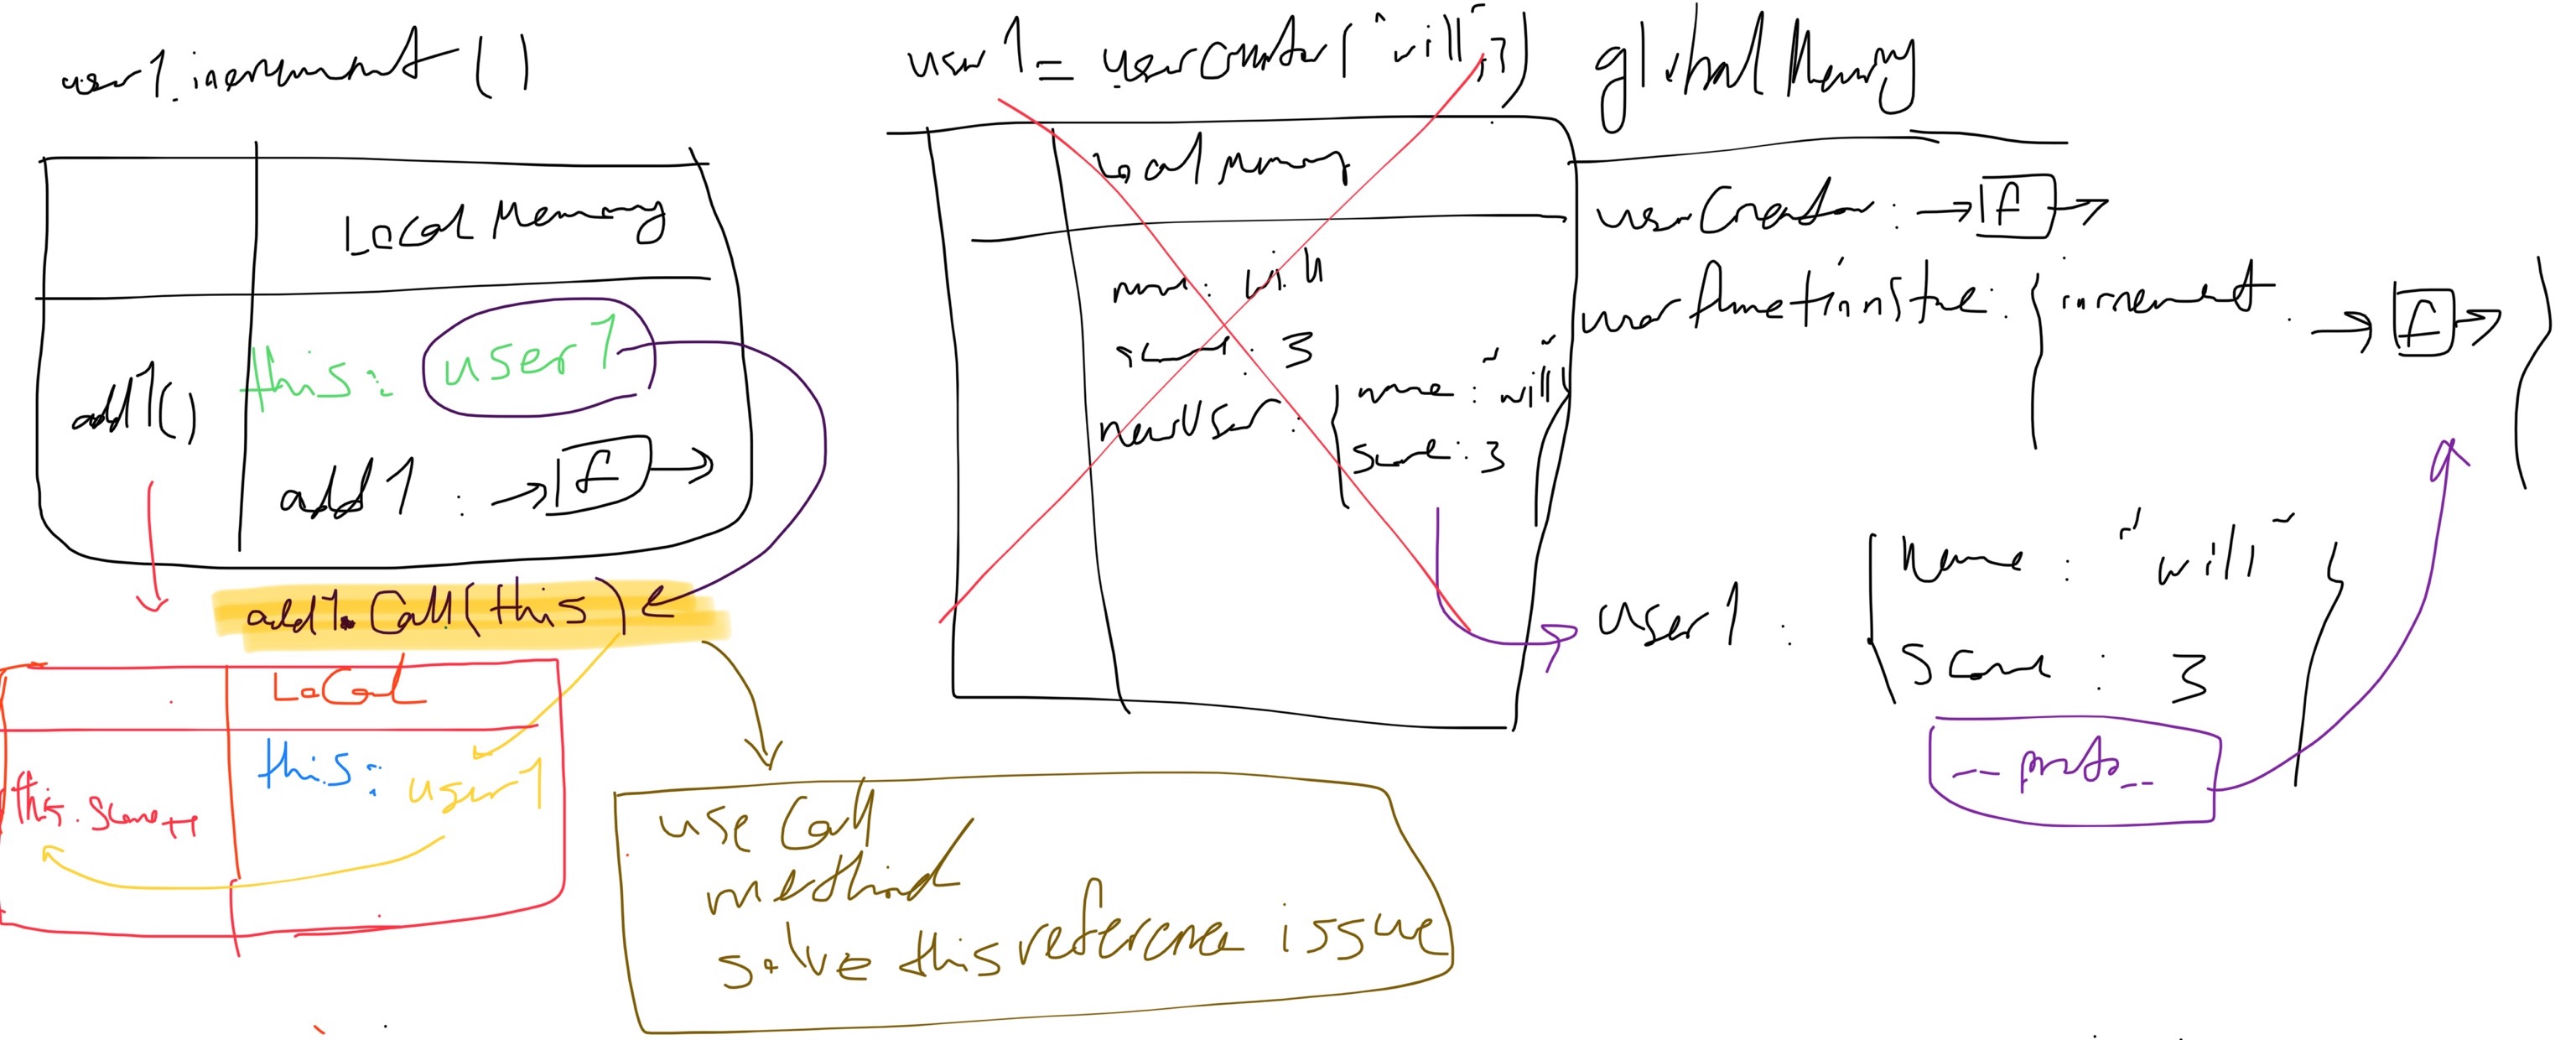 user1.increment()
Local Memory
this: user1
add1()
add1 : → f →
add1.Call(this)
Local
this: user1
this.score++
use Call
method
solve this reference issue
user1 = userCreator("will", 3)
Local Memory
name: will
score: 3
newUser: { name: "will"
score: 3
global Memory
userCreator: → f →
userFunctionStore: { increment: → f → }
user1 : { Name : "will"
Score : 3 }
__proto__